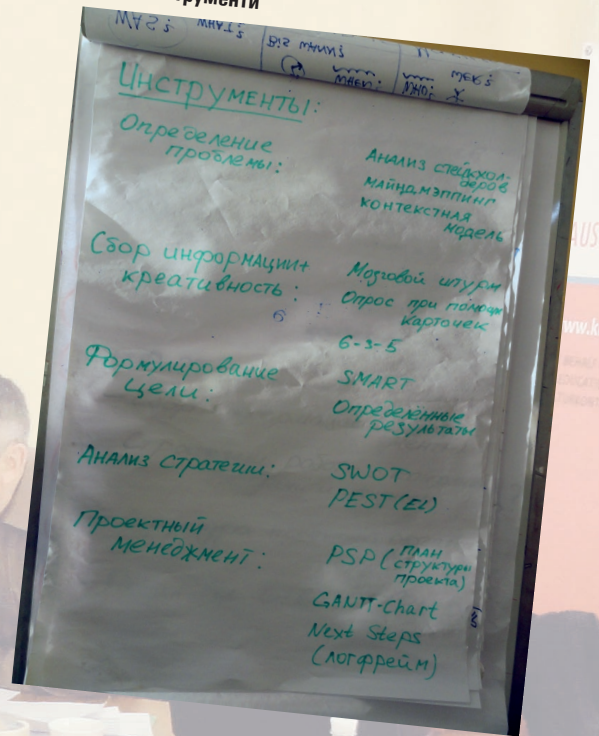 струменти
WAS? WHAT?
BIS WANN?
WHEN?
WER?
WHO?
Инструменты:
Определение
проблемы:
Анализ стейкхол-
деров
майндмэппинг
контекстная
модель
Сбор информации+
креативность:
Мозговой штурм
Опрос при помощи
карточек
6-3-5
Формулирование
цели:
SMART
Определённые
результаты
Анализ стратегии:
SWOT
PEST(EL)
Проектный
менеджмент:
PSP (план
структуры
проекта)
GANTT-Chart
Next Steps
(логфрейм)
AUS
www.k